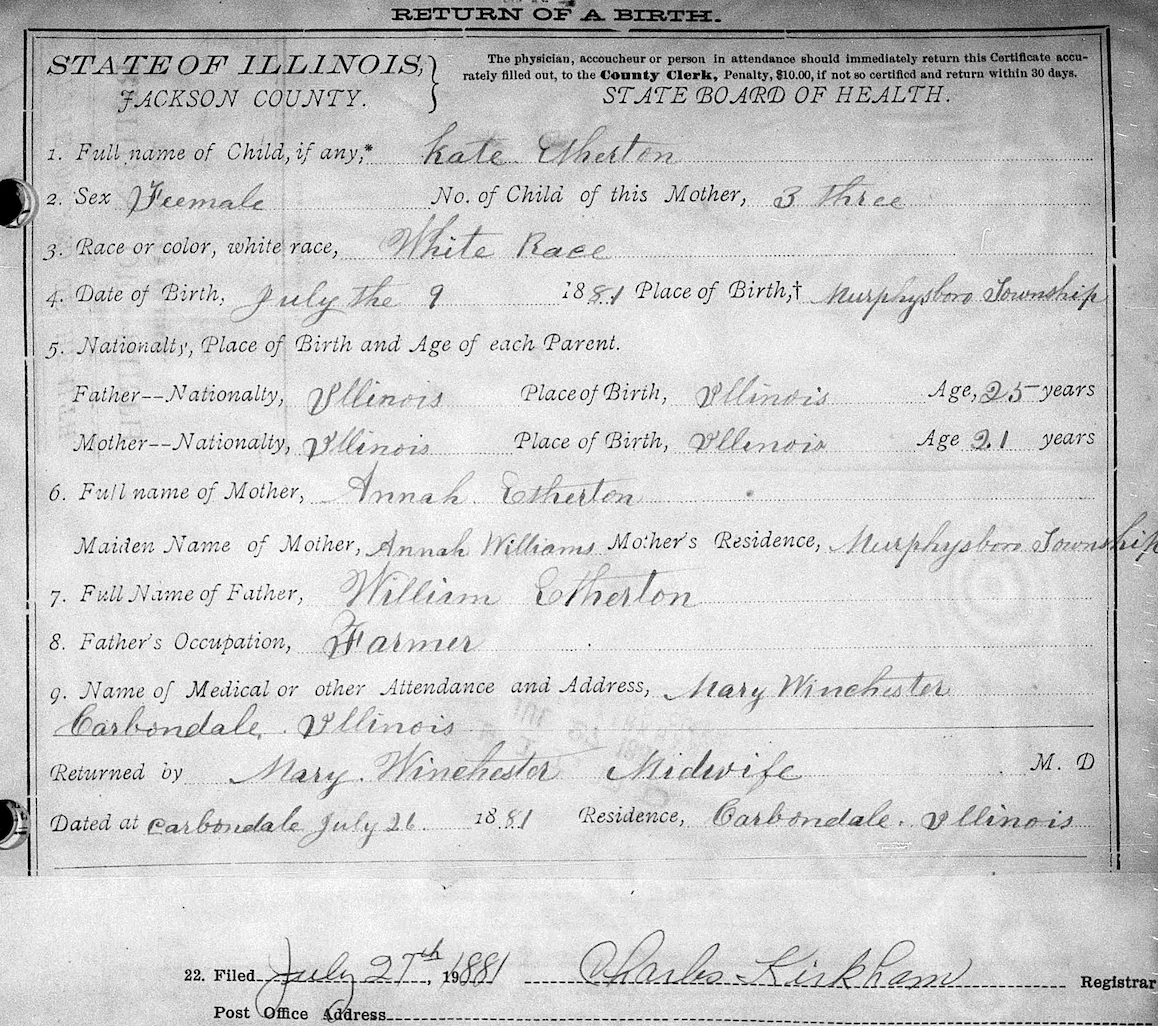 RETURN OF A BIRTH.
STATE OF ILLINOIS, JACKSON COUNTY.
The physician, accoucheur or person in attendance should immediately return this Certificate accu-
rately filled out, to the County Clerk, Penalty, $10.00, if not so certified and return within 30 days.
STATE BOARD OF HEALTH.
1. Full name of Child, if any,* Kate Etherton
2. Sex Feemale No. of Child of this Mother, 3 three
3. Race or color, white race, White Race
4. Date of Birth, July the 9 1881 Place of Birth,† Murphysboro Township
5. Nationalty, Place of Birth and Age of each Parent.
Father--Nationalty, Illinois Place of Birth, Illinois Age, 25 years
Mother--Nationalty, Illinois Place of Birth, Illinois Age 21 years
6. Full name of Mother, Annah Etherton
Maiden Name of Mother, Annah Williams Mother's Residence, Murphysboro Township
7. Full Name of Father, William Etherton
8. Father's Occupation, Farmer
9. Name of Medical or other Attendance and Address, Mary Winchester
Carbondale. Illinois
Returned by Mary. Winchester Midwife M. D
Dated at Carbondale July 26. 1881 Residence, Carbondale. Illinois
22. Filed July 27th, 1881 Charles Kirkham Registrar
Post Office Address